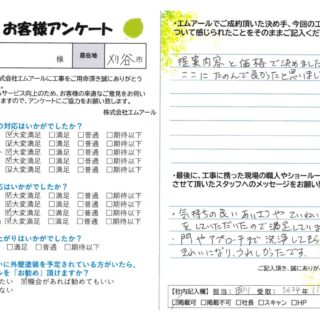 お客様アンケート
様
居住地
刈谷市
株式会社エムアールに工事をご用命頂き誠にありがとう
サービス向上のため、お客様の率直なご意見をお伺い
ますので、アンケートにご協力をお願い致します。
株式会社エムアール
の対応はいかがでしたか?
大変満足 満足 普通 期待以下
大変満足 満足 普通 期待以下
大変満足 満足 普通 期待以下
大変満足 満足 普通 期待以下
の対応はいかがでしたか?
大変満足 満足 普通 期待以下
大変満足 満足 普通 期待以下
大変満足 満足 普通 期待以下
大変満足 満足 普通 期待以下
上がりはいかがでしたか?
大変満足 満足 普通 期待以下
いに外壁塗装を予定されている方がいたら、
ルを「お勧め」頂けますか?
たい 機会があれば勧めてもいい
ない
・エムアールでご成約頂いた決め手、今回の工
ついて感じられたことをそのままご記入くだ
提案内容と価格で決めました
ここにたのんで良かったと思いまし
・最後に、工事に携った現場の職人やショールー
させて頂いたスタッフへのメッセージをお願い
・気持ちの良いあいさつやていねい
をしていただいたので満足してい
・門やアプローチまで洗浄してもら
きれいになり、うれしかったです。
ご記入頂き、誠にありがとう
【社内記入欄】 担当 受取 2024
掲載可 掲載不可 社長 スキャン HP